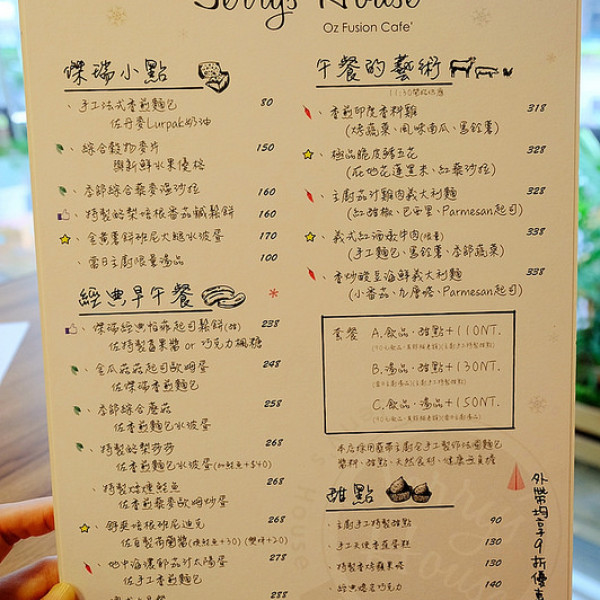 Jerry's House
Oz Fusion Cafe'
傑瑞小點
手工法式香煎麵包 80
佐丹麥Lurpak奶油
綜合穀物麥片 150
與新鮮水果優格
季節綜合藜麥溫沙拉 160
特製酪梨培根番茄鹹鬆餅 160
金黃薯餅班尼火腿水波蛋 170
當日主廚限量湯品 100
經典早午餐
傑瑞經典培根起司鬆餅(甜) 238
佐特製莓果醬 or 巧克力楓糖
金瓜菇菇起司歐姆蛋 248
佐傑瑞香煎麵包
季節綜合蘑菇 258
佐香煎麵包水波蛋
特製酪梨莎莎 268
佐香煎麵包水波蛋(加鮭魚+$40)
特製煙燻鮭魚 268
佐香煎藜麥歐姆炒蛋
舒爽培根班尼迪克 268
佐自製荷蘭醬(換鮭魚+30)(雙味+20)
地中海燉鄉茄汁太陽蛋 278
佐手工香煎麵包
288
午餐的藝術
11:30開始供應
香煎印度香料雞 318
(烤蔬菜、風味南瓜、馬鈴薯)
極品脆皮鱈五花 328
(在地花蓮黑米、紅藜沙拉)
主廚茄汁雞肉義大利麵 328
(紅甜椒、巴西里、Parmesan起司)
義式紅酒燉牛肉(限量) 338
(手工麵包、馬鈴薯、季節蔬菜)
香炒酸豆海鮮義大利麵 338
(小番茄、九層塔、Parmesan起司)
套餐 A.飲品、甜點+110NT.
B.湯品、甜點+130NT.
C.飲品、湯品+150NT.
甜點
主廚手工特製甜點 90
手工天使香蕉蛋糕 130
特製香烤蘋果塔 130
經典熔岩巧克力 140
外帶均享9折優惠